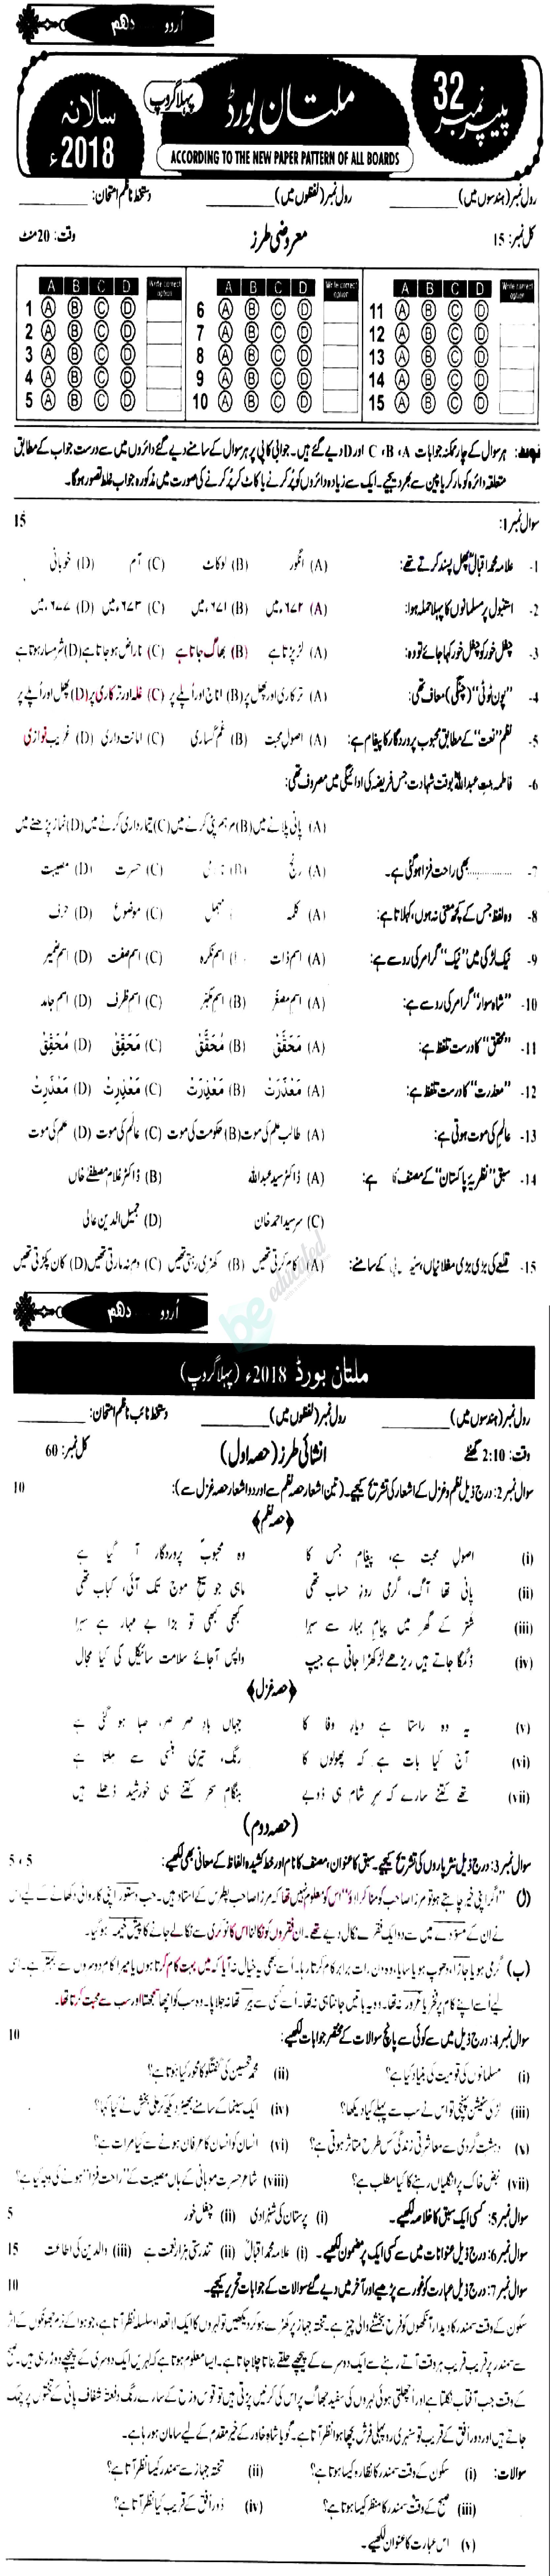 اُردو دهم
پیپر نمبر 32
ملتان بورڈ
پہلا گروپ
سالانہ 2018ء
ACCORDING TO THE NEW PAPER PATTERN OF ALL BOARDS
رول نمبر (ہندسوں میں) رول نمبر (لفظوں میں) دستخط ناظم امتحان:
کل نمبر: 15 معروضی طرز وقت: 20 منٹ
A B C D Write correct option A B C D Write correct option A B C D Write correct option
1 A B C D 6 A B C D 11 A B C D
2 A B C D 7 A B C D 12 A B C D
3 A B C D 8 A B C D 13 A B C D
4 A B C D 9 A B C D 14 A B C D
5 A B C D 10 A B C D 15 A B C D
نوٹ: ہر سوال کے چار ممکنہ جوابات A، B، C اور D دیے گئے ہیں۔ جوابی کاپی پر ہر سوال کے سامنے دیے گئے دائروں میں سے درست جواب کے مطابق
متعلقہ دائرہ کو مارکر یا پین سے بھر دیجیے۔ ایک سے زیادہ دائروں کو پُر کرنے یا کاٹ کر پُر کرنے کی صورت میں مذکورہ جواب غلط تصور ہوگا۔
سوال نمبر 1: 15
1- علامہ محمد اقبالؒ پھل پسند کرتے تھے: (A) انگور (B) لوکاٹ (C) آم (D) خوبانی
2- استنبول پر مسلمانوں کا پہلا حملہ ہوا: (A) ۶۷۲ء میں (B) ۶۷۱ء میں (C) ۶۷۳ء میں (D) ۶۷۷ء میں
3- چغل خور کو چغل خور کہا جائے تو وہ: (A) لڑ پڑتا ہے (B) بھاگ جاتا ہے (C) ناراض ہو جاتا ہے (D) شرمسار ہوتا ہے
4- "پون ٹوٹی" (چنگی) معاف تھی: (A) ترکاری اور پھل پر (B) اناج اور اُپلے پر (C) غلہ اور ترکاری پر (D) پھل اور اُپلے پر
5- نظم "نعت" کے مطابق محبوب پروردگار کا پیغام ہے: (A) اصولِ محبت (B) غم گساری (C) امانت داری (D) غریب نوازی
6- فاطمہ بنتِ عبداللہ بوقتِ شہادت جس فریضہ کی ادائیگی میں مصروف تھی:
(A) پانی پلانے میں (B) مرہم پٹی کرنے میں (C) تیمارداری کرنے میں (D) نماز پڑھنے میں
7- .............. بھی راحت فزا ہو گئی ہے۔ (A) رنج (B) (C) حسرت (D) مصیبت
8- وہ لفظ جس کے کچھ معنی نہ ہوں، کہلاتا ہے: (A) کلمہ مہمل (C) موضوع (D) حرف
9- نیک لڑکی میں "نیک" گرامر کی رو سے ہے: (A) اسم ذات اسم نکرہ (C) اسم صفت (D) اسم ضمیر
10- "شاہ سوار" گرامر کی رو سے ہے: (A) اسم مصغّر (B) اسم مکبّر (C) اسم ظرف (D) اسم جامد
11- "محقق" کا درست تلفظ ہے: (A) مَحَقَّقْ (B) مُحَقَّقْ (C) مَحَقِّقْ (D) مُحَقِّقْ
12- "معذرت" کا درست تلفظ ہے:
13- عالِم کی موت ہوتی ہے: (A) طالب علم کی موت (B) حکومت کی موت (C) عالَم کی موت (D) علم کی موت
14- سبق "نظریۂ پاکستان" کے مصنف کا ہے: (A) ڈاکٹر سید عبداللہ (B) ڈاکٹر غلام مصطفےٰ خاں
(C) سرسید احمد خان (D) جمیل الدین عالی
15- قلعے کی بڑی بڑی مغلانیاں، کے سامنے: (A) کام کرتی تھیں (B) کھڑی رہتی تھیں (C) دم نہ مارتی تھیں (D) کان پکڑتی تھیں
be educated
اُردو دهم
ملتان بورڈ 2018ء (پہلا گروپ)
رول نمبر (ہندسوں میں) رول نمبر (لفظوں میں) دستخط نائب ناظم امتحان:
وقت: 2:10 گھنٹے انشائی طرز (حصہ اول) کل نمبر: 60
سوال نمبر 2: درج ذیل نظم و غزل کے اشعار کی تشریح کیجیے۔ (تین اشعار حصہ نظم سے اور دو اشعار حصہ غزل سے): 10
﴿حصہ نظم﴾
(i) اصولِ محبت ہے، پیغام جس کا وہ محبوبِ پروردگار آ گیا ہے
(ii) پانی تھا آگ، گرمیٔ روزِ حساب تھی ماہی جو سیخِ موج تک آئی، کباب تھی
(iii) شتر کے گھر میں پیامِ بہار ہے سہرا کبھی کبھی تو بڑا بے مہار ہے سہرا
(iv) ڈگمگا جاتے ہیں ریڑھے لڑکھڑا جاتی ہے جیپ واپس آ جائے سلامت سائیکل کی کیا مجال
﴿حصہ غزل﴾
(v) یہ وہ راستا ہے دیارِ وفا کا جہاں بادِ صر صر، صبا ہو گئی ہے
(vi) آج کیا بات ہے کہ پھولوں کا رنگ، تیری ہنسی سے ملتا ہے
(vii) تھے کتنے ستارے کہ سرِ شام ہی ڈوبے ہنگامِ سحر کتنے ہی خورشید ڈھلے ہیں
(حصہ دوم)
سوال نمبر 3: درج ذیل نثر پاروں کی تشریح کیجیے۔ سبق کا عنوان، مصنف کا نام اور خط کشیدہ الفاظ کے معانی بھی لکھیے: 5 ، 5
(ا) "اگر اپنی خیر چاہتے ہو تو مرزا صاحب کو منا کر لاؤ" اس کو معلوم نہیں تھا کہ مرزا صاحب پطرس کے استاد ہیں۔ حسبِ دستور اپنی کاروائی دکھانے کے لیے اس
نے ان کے مسودے میں سے دو ایک فقرے نکال دیے تھے۔ ان فقروں کو نکالنا اس کا نوکری سے نکالے جانے کا پیش خیمہ ہو گیا۔
(ب) گرمی ہو یا جاڑا، دھوپ ہو یا سایا، وہ دن رات برابر کام کرتا رہا۔ اُسے کبھی یہ خیال نہ آیا کہ میں بہت کام کرتا ہوں یا میرا کام دوسروں سے بہتر ہے۔ اسی
لیے اُسے اپنے کام پر فخر یا غرور نہ تھا۔ وہ یہ باتیں جانتا ہی نہ تھا۔ اُسے کسی سے بیر تھا نہ جلاپا۔ وہ سب کو اچھا سمجھتا اور سب سے محبت کرتا تھا۔
سوال نمبر 4: درج ذیل میں سے کوئی سے پانچ سوالات کے مختصر جوابات لکھیے: 10
(i) مسلمانوں کی قومیت کی بنیاد کیا ہے؟ (ii) محمد تحسین کی گفتگو کا محور کیا ہوتا ہے؟
(iii) لڑکی اسٹیشن پہنچی تو اس نے سب سے پہلے کیا دیکھا؟ (iv) ایک سینما کے سامنے بھیڑ دیکھ کر علی بخش نے کیا کہا؟
(v) دہشت گردی سے معاشرتی زندگی کس طرح متاثر ہوتی ہے؟ (vi) انسان کو انسان کا عرفان ہونے سے کیا مراد ہے؟
(vii) نبضِ خاک پر انگلیاں رہنے کا کیا مطلب ہے؟ (viii) شاعر حسرت موہانی کے ہاں مصیبت کے "راحت فزا" ہونے کی وجہ کیا ہے؟
سوال نمبر 5: کسی ایک سبق کا خلاصہ لکھیے۔ (i) پرستان کی شہزادی (ii) چغل خور 5
سوال نمبر 6: درج ذیل عنوانات میں سے کسی ایک پر مضمون لکھیے۔ (i) علامہ محمد اقبالؒ (ii) تندرستی ہزار نعمت ہے (iii) والدین کی اطاعت 15
سوال نمبر 7: درج ذیل عبارت کو غور سے پڑھیے اور آخر میں دیے گئے سوالات کے جوابات تحریر کیجیے۔ 10
سکون کے وقت سمندر کا دیدار آنکھوں کو فرح بخشنے والی چیز ہے۔ تختہ جہاز پر کھڑے ہو کر دیکھیں تو لہروں کا ایک لا تعداد سلسلہ نظر آتا ہے، جو ہوا کے نرم جھونکوں کے اثر
سے سمندر پر قریب قریب ہر وقت آتے رہنے سے ایک دوسرے کے پیچھے حلقے بناتا چلا جاتا ہے۔ ایسا معلوم ہوتا ہے کہ لہریں ایک دوسری کے پیچھے دوڑ رہی ہیں۔ صبح
کے وقت جب آفتاب نکلتا ہے اور اُچھلتی ہوئی لہروں کی سفید جھاگ پر اس کی کرنیں پڑتی ہیں تو قوس و قزح کے سارے رنگ دفعتہً شفاف پانی کے تختوں پر چمک
جاتے ہیں اور دور افق کے قریب تو سنہری روپہلی فرش بچھا ہوا نظر آتا ہے۔ گویا شاہِ خاور کے خیر مقدم کے لیے سامان ہو رہا ہے۔
سوالات: (i) سکون کے وقت سمندر کا نظارہ کیسا ہوتا ہے؟ (ii) تختہ جہاز سے سمندر کیسا نظر آتا ہے؟
(iii) صبح کے وقت سمندر کا منظر کیسا ہوتا ہے؟ (iv) دور افق کے قریب کیا نظر آتا ہے؟
(v) اس عبارت کا عنوان لکھیے۔